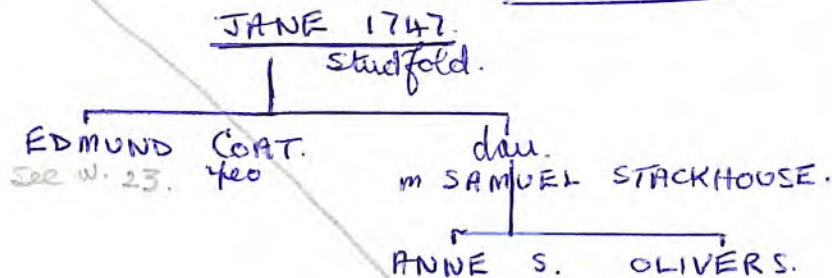 JANE 1747.
Studfold.
EDMUND COAT. dau.
See W. 23. yeo m SAMUEL STACKHOUSE.
ANNE S. OLIVER S.